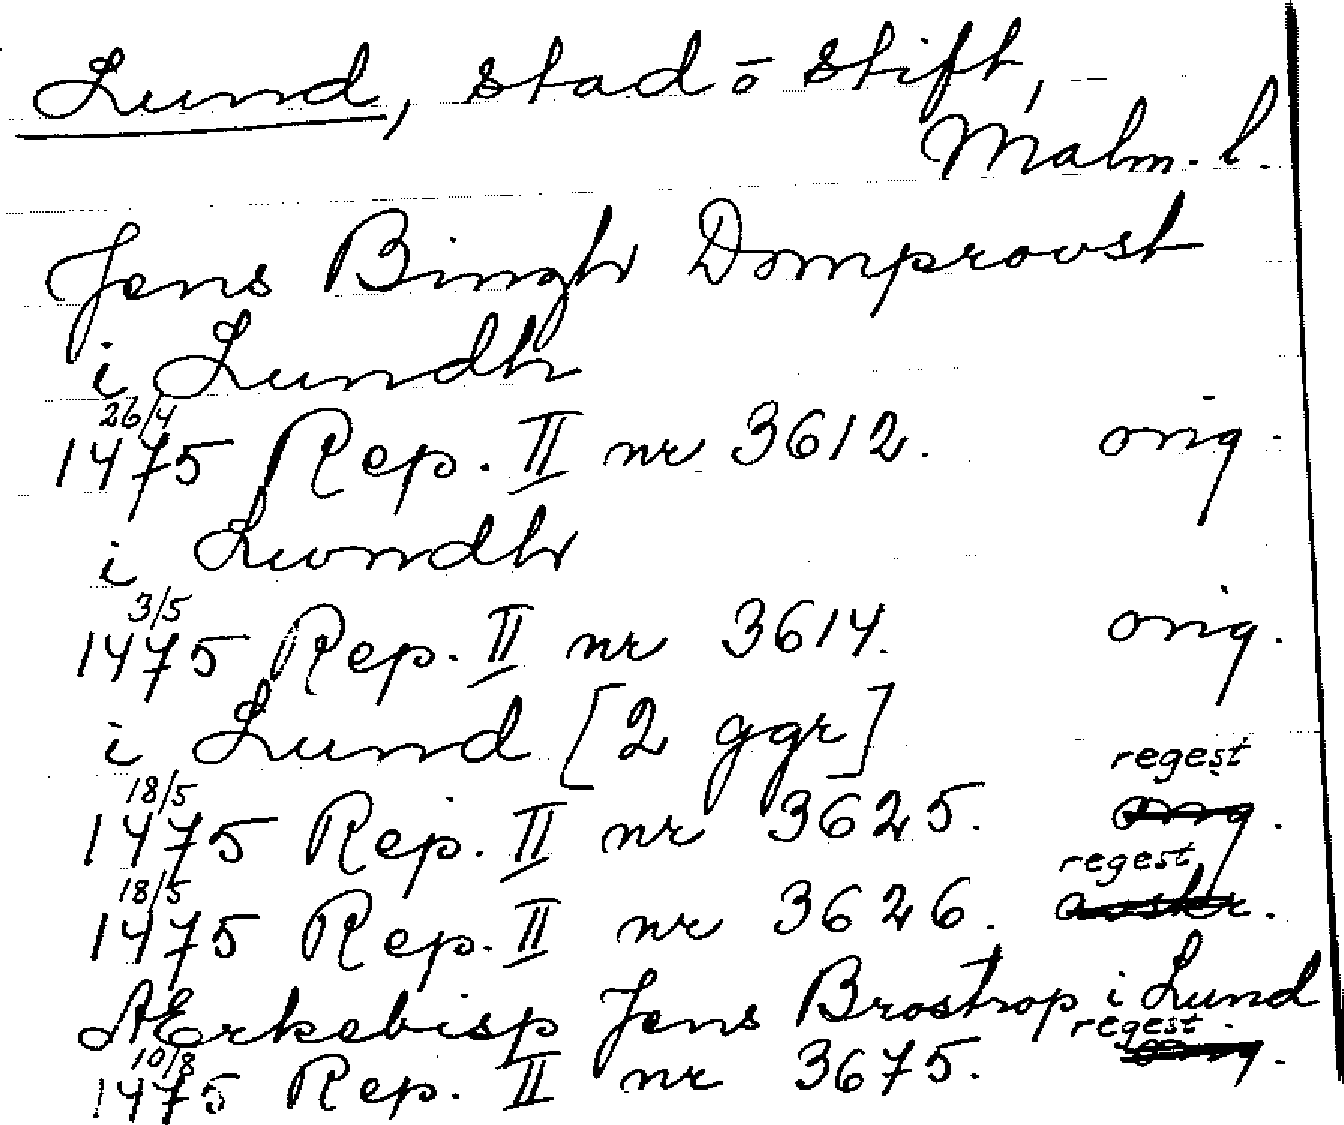 Lund, stad ō stift,
Malm. l.
Jens Bingh Domprovst
i Lundh
26/4
1475 Rep. II nr 3612. orig.
i Lwndh
3/5
1475 Rep. II nr 3614. orig.
i Lund [2 ggr]
18/5 regest
1475 Rep. II nr 3625. orig.
18/5 regest
1475 Rep. II nr 3626. avskr.
AErkebisp Jens Brostrop i Lund
10/8 regest
1475 Rep. II nr 3675. orig.